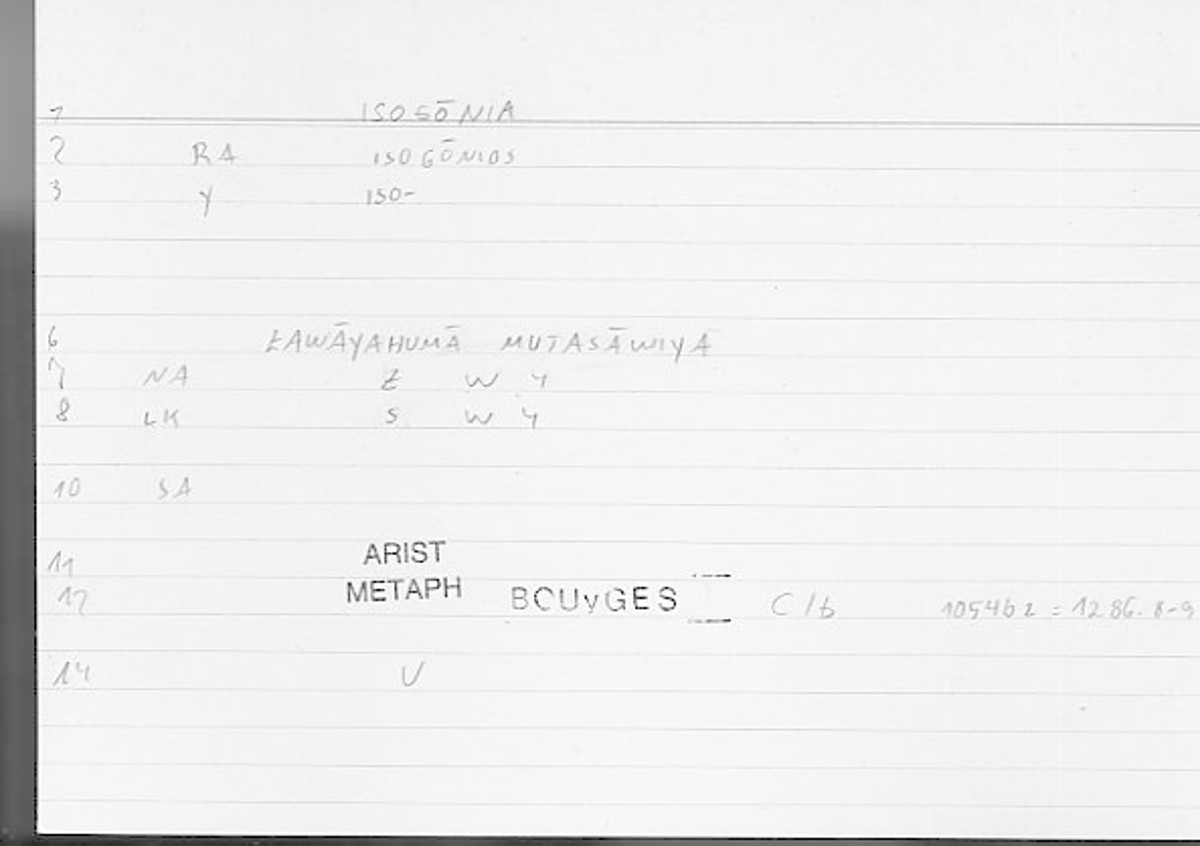 1 ISOGŌNIA
2 RA ISOGŌNIOS
3 Y ISO-
6 ZAWĀYAHUMĀ MUTASĀWIYA
7 NA Z W Y
8 LK S W Y
10 SA
11 ARIST
12 METAPH BOUyGES C 1b 1054b2 = 1286.8-9
14 V